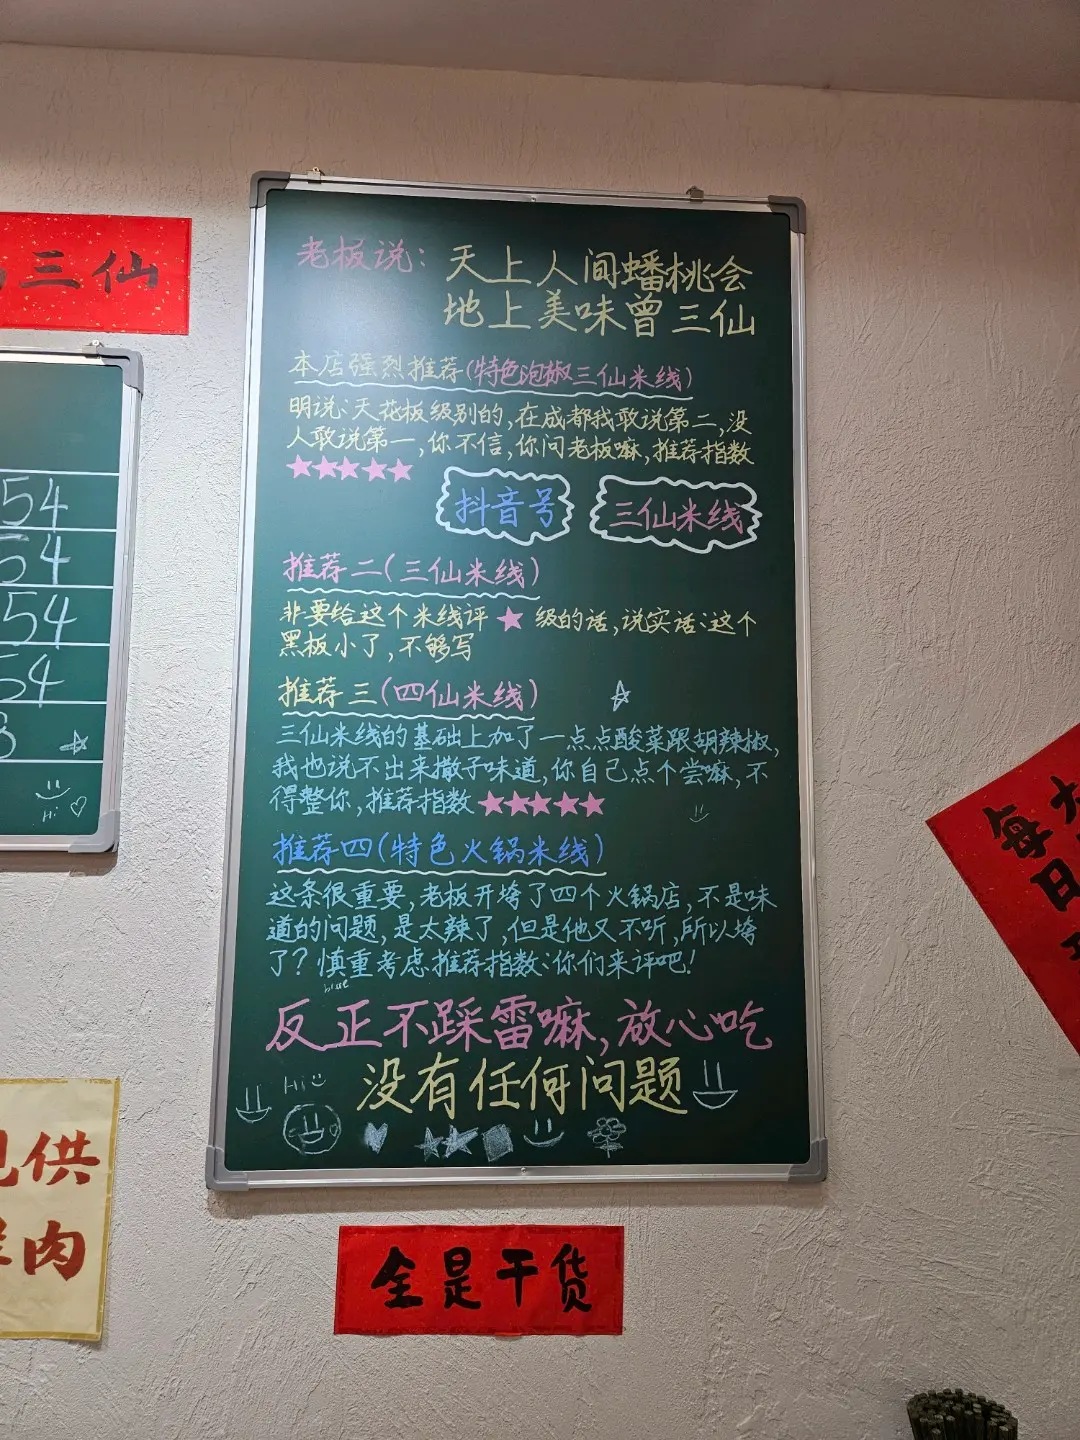 三仙
54
54
54
54
Hi
现供
肉
老板说：天上人间蟠桃会
地上美味曾三仙
本店强烈推荐(特色泡椒三仙米线)
明说：天花板级别的，在成都我敢说第二，没
人敢说第一，你不信，你问老板嘛，推荐指数
★★★★★
抖音号 三仙米线
推荐二(三仙米线)
非要给这个米线评★级的话，说实话：这个
黑板小了，不够写
推荐三(四仙米线)
三仙米线的基础上加了一点点酸菜跟胡辣椒，
我也说不出来撒子味道，你自己点个尝嘛，不
得整你，推荐指数★★★★★
推荐四(特色火锅米线)
这条很重要，老板开垮了四个火锅店，不是味
道的问题，是太辣了，但是他又不听，所以垮
了？慎重考虑推荐指数：你们来评吧！
blue
反正不踩雷嘛，放心吃
没有任何问题
Hi
全是干货
每日